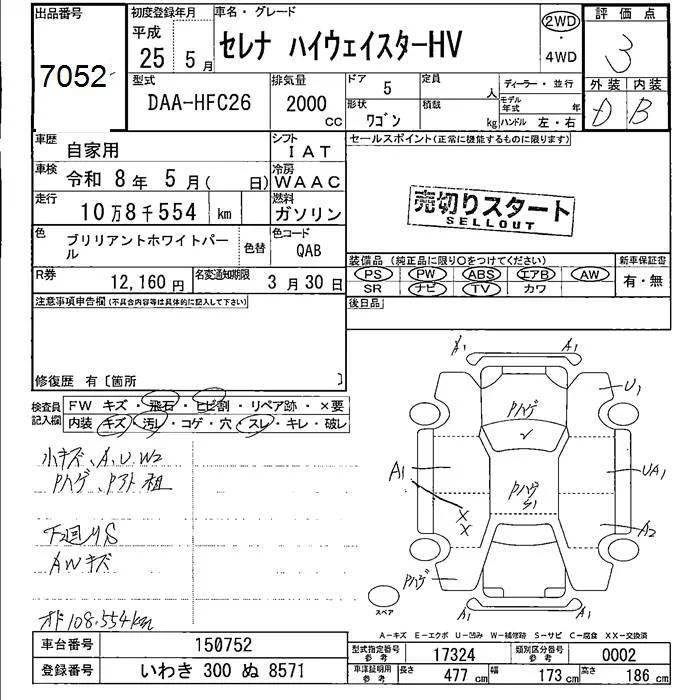 出品番号
7052
初度登録年月
平成
25 5月
車名・グレード
セレナ ハイウェイスターHV
2WD
・
4WD
評価点
3
外装 内装
D B
型式
DAA-HFC26
排気量
2000
cc
ドア 5
定員
人
形状
ワゴン
積載
kg
ディーラー・並行
モデル
年式
年
ハンドル 左・右
車歴
自家用
シフト
IAT
車検
令和 8年 5月( 日)
冷房
WAAC
走行
10万8千554 km
燃料
ガソリン
色
ブリリアントホワイトパール
色替
色コード
QAB
R券
12,160円
名変通知期限
3月30日
セールスポイント(正常に機能するものに限ります)
売切りスタート
SELLOUT
装備品 (純正品に限り○をつけてください)
PS PW ABS エアB AW
SR ナビ TV カワ
新車保証書
有・無
後日品
注意事項申告欄(不具合内容等は具体的に記入して下さい)
修復歴 有〔箇所 〕
検査員
記入欄
FW キズ・飛石・ヒビ割・リペア跡・×要
内装 キズ・汚レ・コゲ・穴・スレ・キレ・破レ
小キズ、A、U、W2
Pハゲ、Pアト 粗
下廻りS
AWキズ
オド108.554km
A1 A1
U1
Pハゲ
A1
UA1
Pハゲ
S1
X
X
A2
Pハゲ
A1 A1
スペア
A-キズ E-エクボ U-凹み W-補修跡 S-サビ C-腐食 XX-交換済
車台番号 150752
登録番号 いわき 300 ぬ 8571
型式指定番号
参考
17324
類別区分番号
参考
0002
車検証明用
参考
長さ 477 cm
幅 173 cm
高さ 186 cm